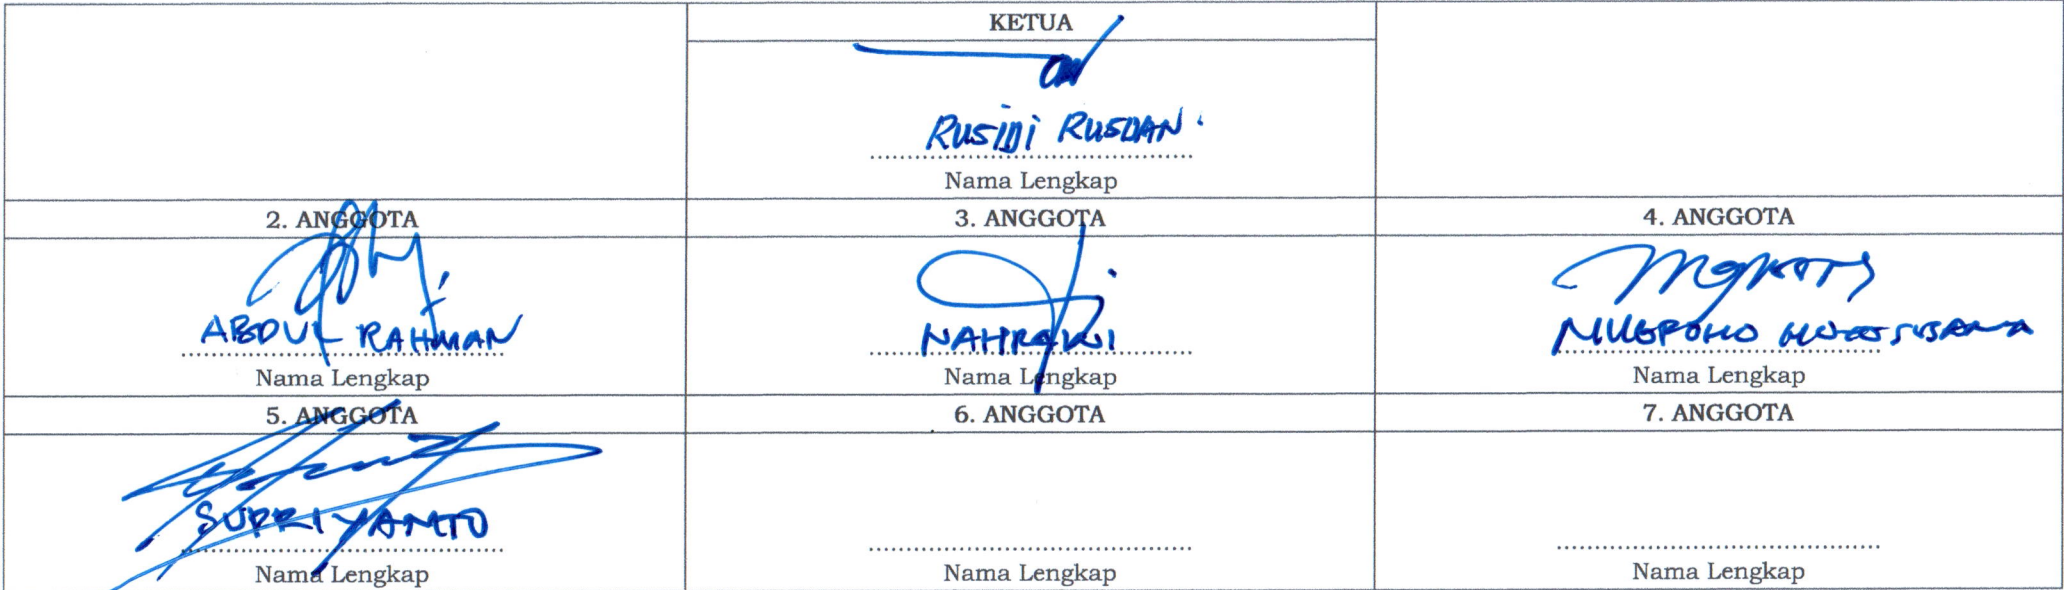 KETUA
RUSIDI RUSDAN.
Nama Lengkap
2. ANGGOTA
3. ANGGOTA
4. ANGGOTA
ABDUL RAHMAN
NAHRAWI
Nama Lengkap
Nama Lengkap
Nama Lengkap
5. ANGGOTA
6. ANGGOTA
7. ANGGOTA
SUPRIYANTO
Nama Lengkap
Nama Lengkap
Nama Lengkap